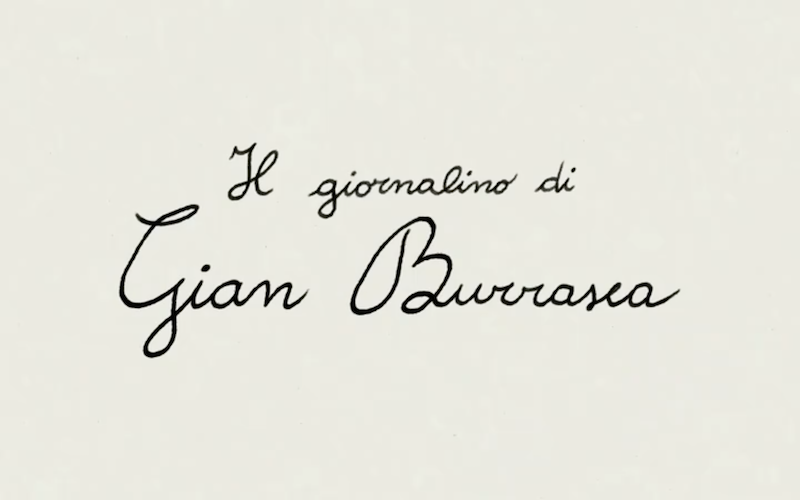 Il giornalino di
Gian Burrasca